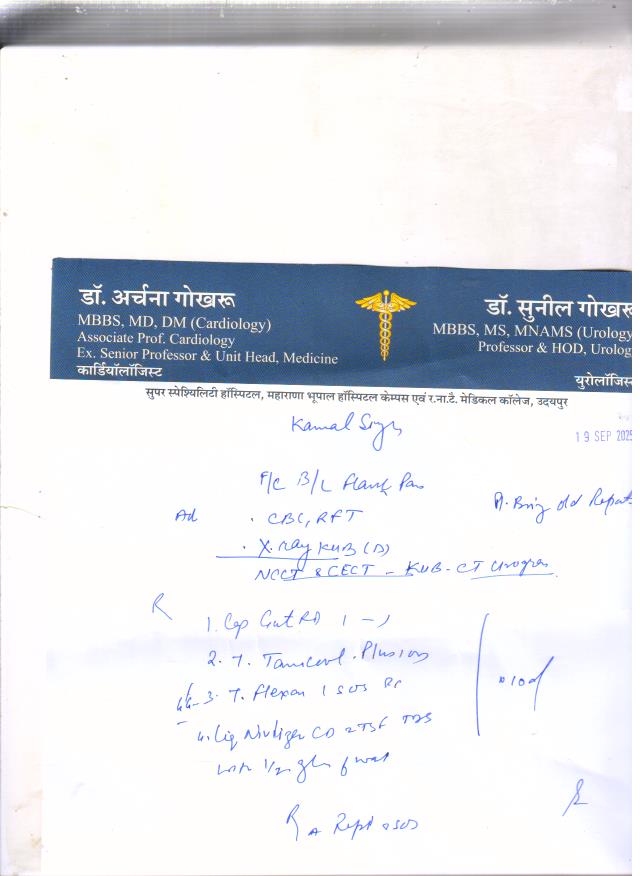 डॉ. अर्चना गोखरू
MBBS, MD, DM (Cardiology)
Associate Prof. Cardiology
Ex. Senior Professor & Unit Head, Medicine
कार्डियॉलॉजिस्ट
डॉ. सुनील गोखरू
MBBS, MS, MNAMS (Urology
Professor & HOD, Urolog
युरोलॉजिस्
सुपर स्पेश्यिलिटी हॉस्पिटल, महाराणा भूपाल हॉस्पिटल केम्पस एवं र.ना.टै. मेडिकल कॉलेज, उदयपुर
Kamal Singh
19 SEP 2025
B/L Flank Pain
old Report
Ad . CBC, RFT
. X.ray KUB (D)
NCCT & CECT - KUB - CT Urogram
R
1. Cap 1 - 1
2. T. Plus
3. T. 1 SOS
4. Liq CO 2TSF TDS
with 1/2 glass of water
x 10 d
R A Report & SOS